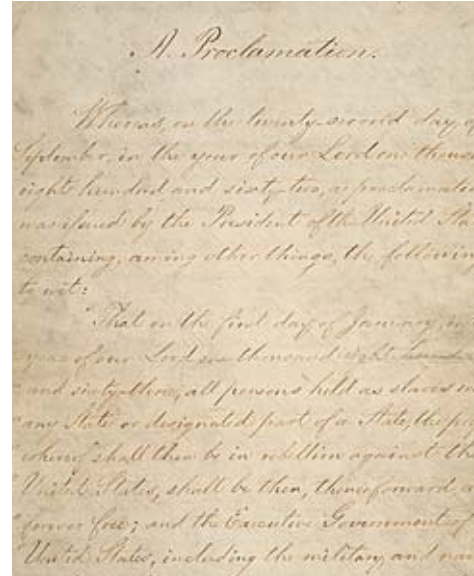 A Proclamation.
Whereas, on the twenty-second day of
September, in the year of our Lord one thousa
eight hundred and sixty-two, a proclamation
was issued by the President of the United Sta
containing, among other things, the following
to wit:
"That on the first day of January, in
year of our Lord one thousand eight hundred
and sixty-three, all persons held as slaves
any State or designated part of a State, the
whereof shall then be in rebellion against the
United States, shall be then, thenceforward,
forever free; and the Executive Government of
United States, including the military and nav